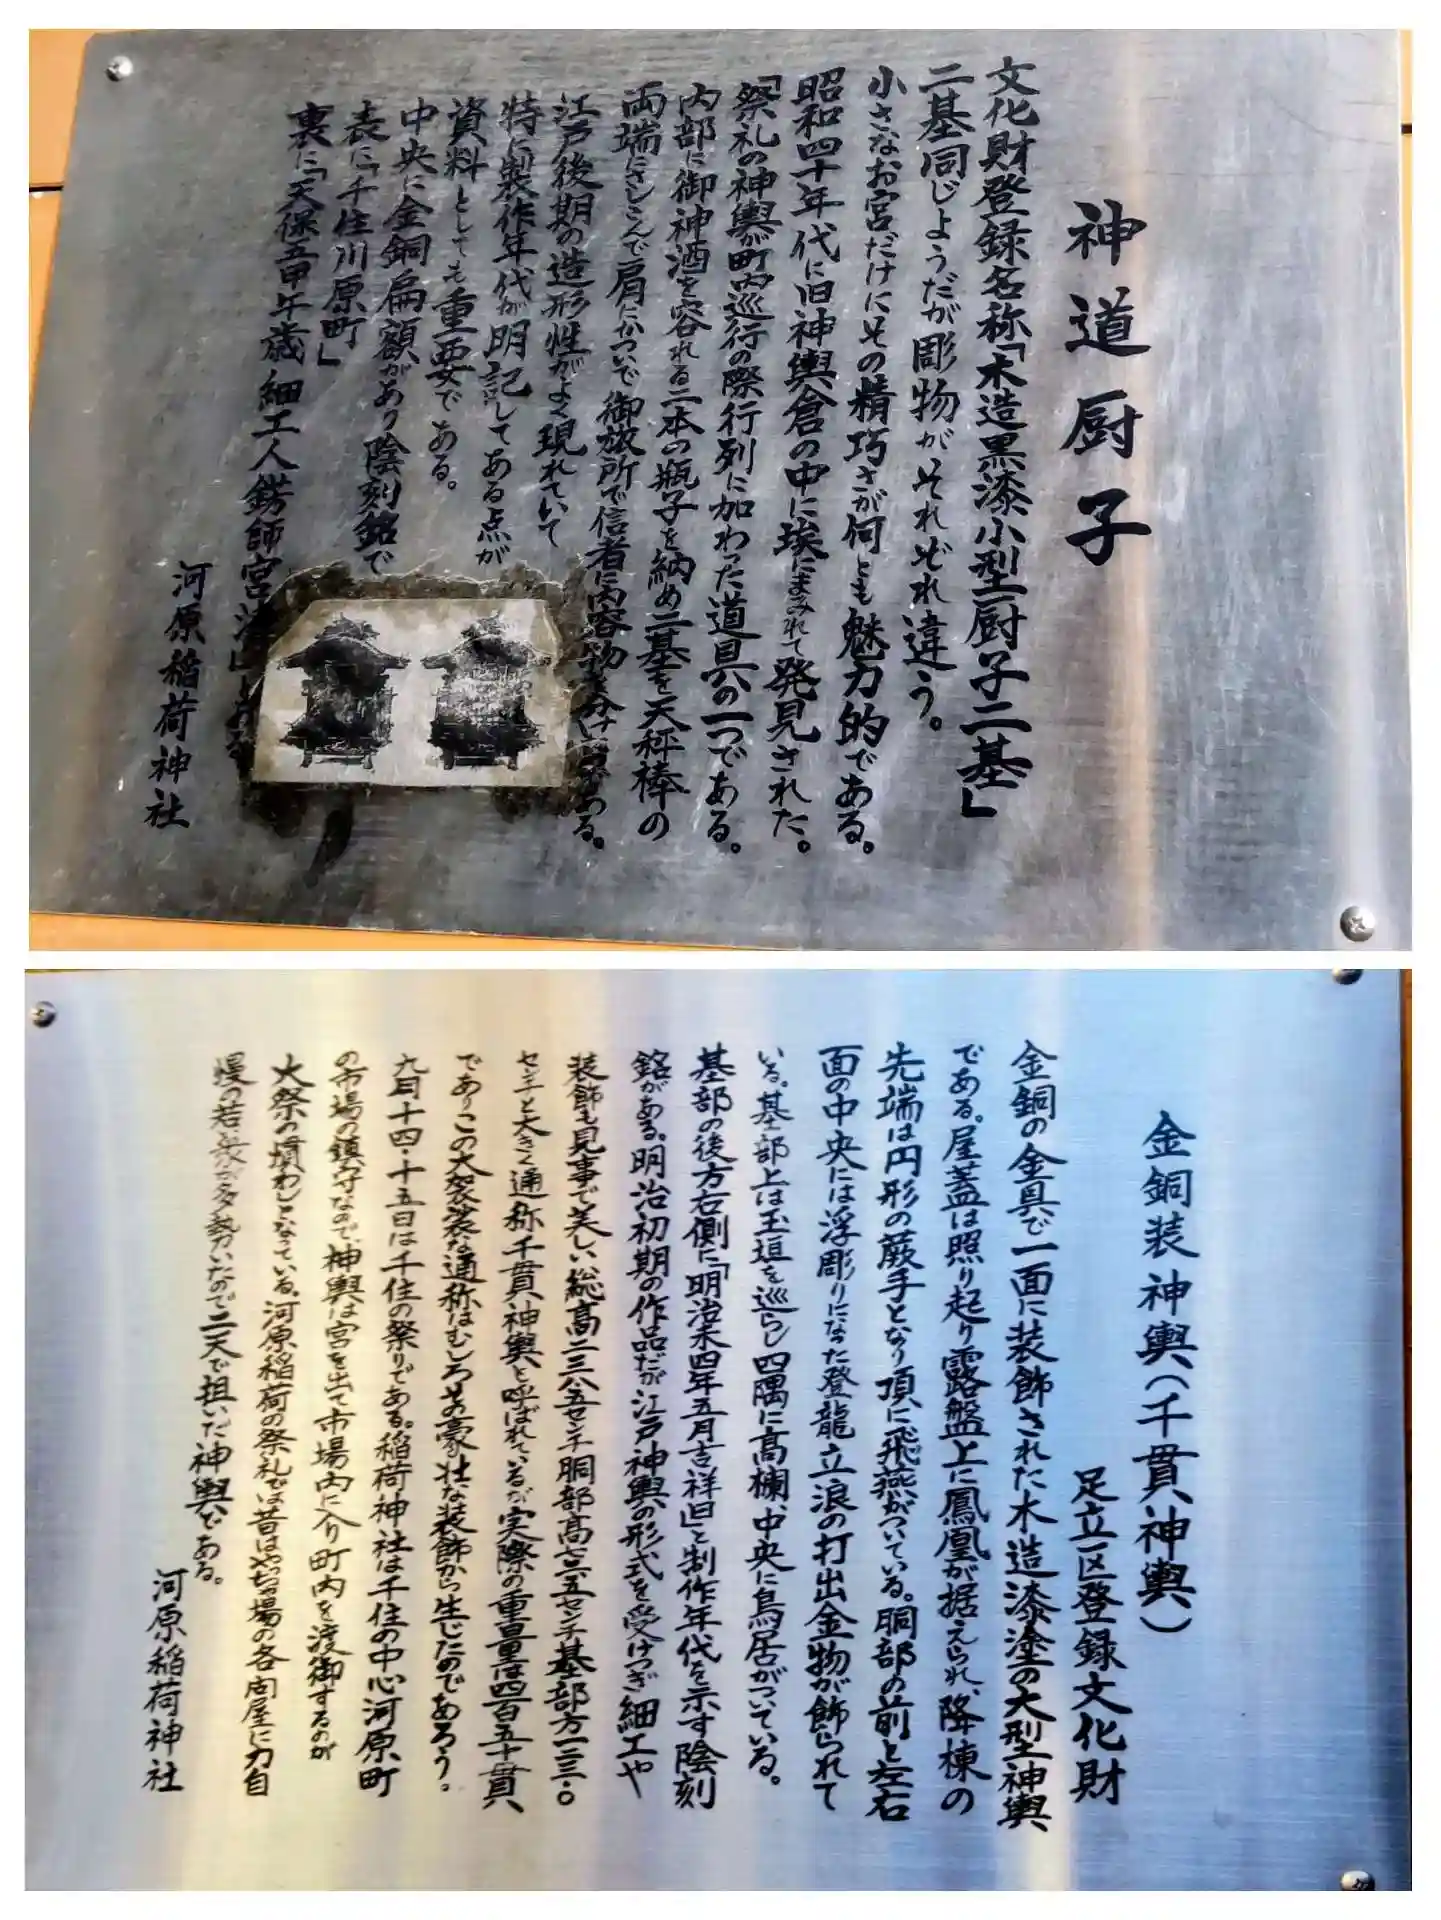 神道厨子
文化財登録名称「木造黒漆小型厨子二基」
二基同じようだが彫物がそれぞれ違う。
小さなお宮だけにその精巧さが何とも魅力的である。
昭和四十年代に旧神輿倉の中に埃にまみれて発見された。
「祭礼の神輿が町内巡行の際行列に加わった道具の一つである。
内部に御神酒を容れる二本の瓶子を納め二基を天秤棒の
両端にさしこんで肩にかついで御旅所で信者に内容物を分け
江戸後期の造形性がよく現れていて
特に製作年代が明記してある点が
資料としても重要である。
中央に金銅扁額があり陰刻銘で
表に「千住川原町」
裏に「天保五甲午歳 細工人錺師宮
河原稲荷神社
金銅装神輿(千貫神輿)
足立区登録文化財
金銅の金具で一面に装飾された木造漆塗の大型神輿
である。屋蓋は照り起り露盤上に鳳凰が据えられ、降棟の
先端は円形の蕨手となり頂に飛燕がついている。胴部の前と左右
面の中央には浮彫りになった登龍立浪の打出金物が飾られて
いる。基部上は玉垣を巡らし四隅に高欄、中央に鳥居がついている。
基部の後方右側に「明治未四年五月吉祥日」と制作年代を示す陰刻
銘がある。明治初期の作品だが江戸神輿の形式を受けつぎ細工や
装飾も見事で美しい。総高二三八・五センチ胴部高七三・五センチ基部方一二三・〇
センチと大きく通称千貫神輿と呼ばれているが実際の重量は四百五十貫
でありこの大袈裟な通称はむしろその豪壮な装飾から生じたのであろう。
九月十四・十五日は千住の祭りである。稲荷神社は千住の中心河原町
の市場の鎮守なので、神輿は宮を出て市場内に入り町内を渡御するのが
大祭の慣わしとなっている。河原稲荷の祭礼では昔はやっちゃ場の各問屋に力自
慢の若い衆が多勢いたので二天で担いだ神輿である。
河原稲荷神社